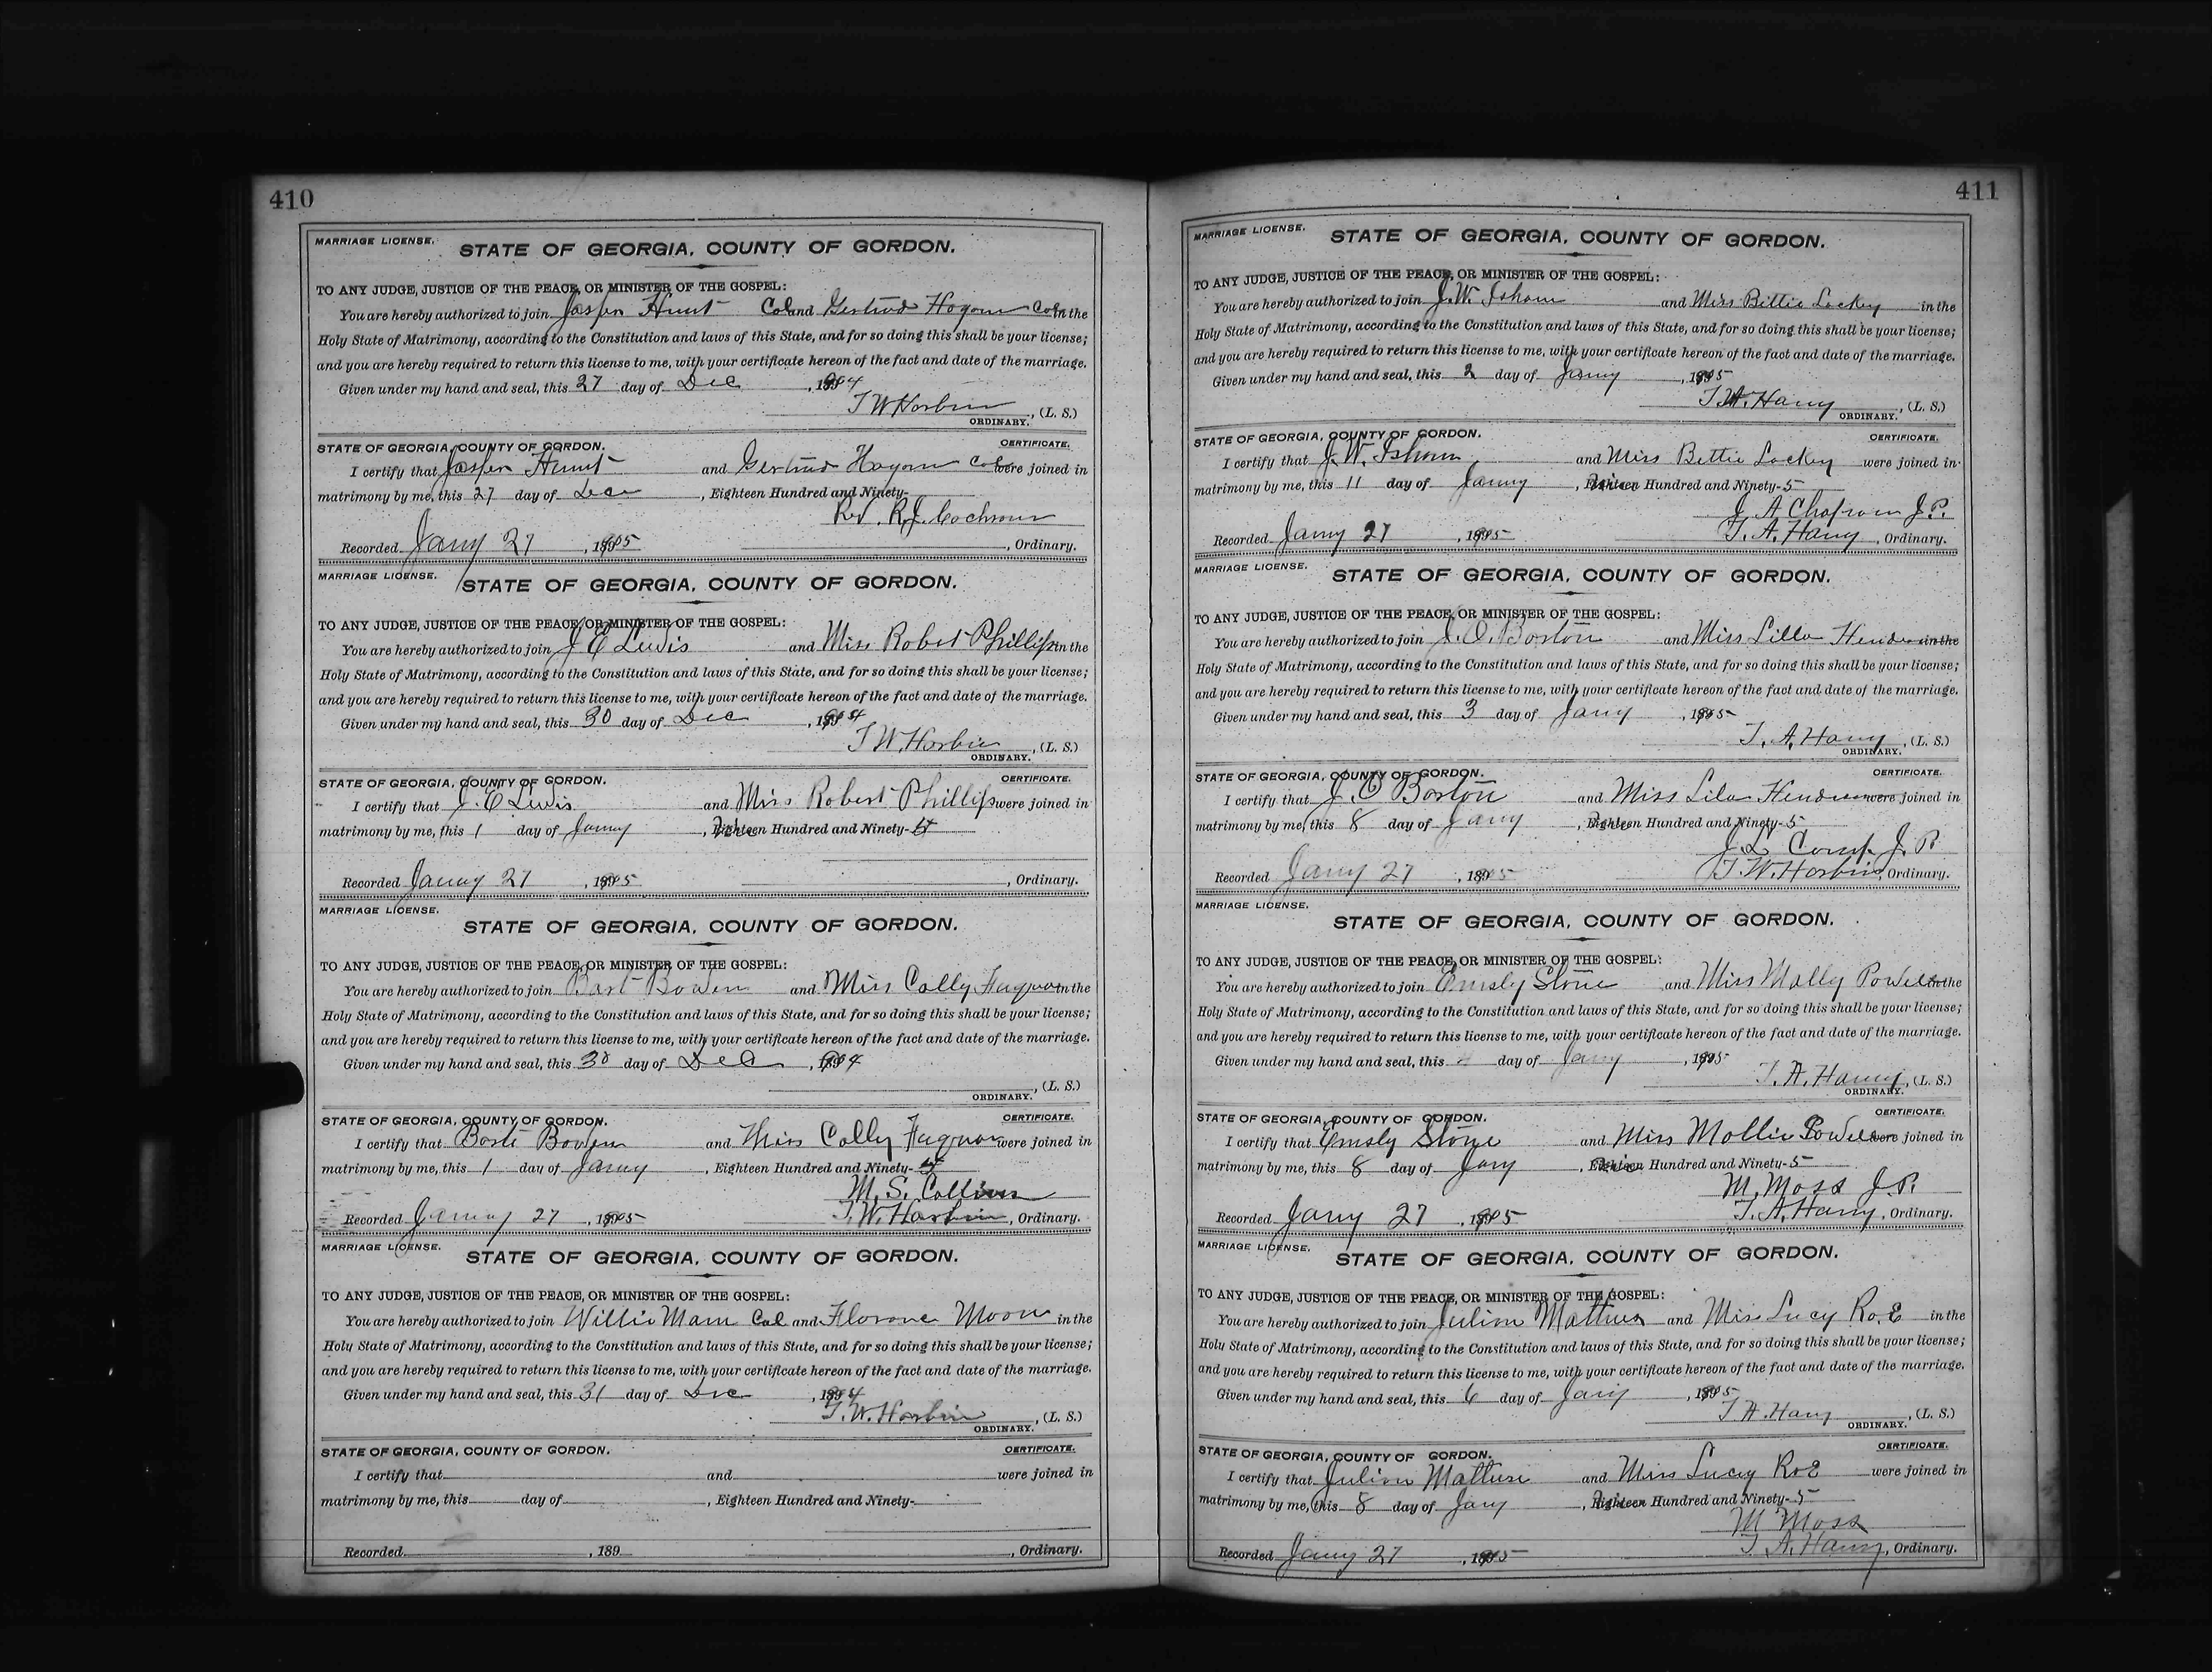 410
MARRIAGE LICENSE.
STATE OF GEORGIA, COUNTY OF GORDON.
TO ANY JUDGE, JUSTICE OF THE PEACE, OR MINISTER OF THE GOSPEL:
You are hereby authorized to join Jasper Hunt Col and Gertrud Col in the
Holy State of Matrimony, according to the Constitution and laws of this State, and for so doing this shall be your license;
and you are hereby required to return this license to me, with your certificate hereon of the fact and date of the marriage.
Given under my hand and seal, this 27 day of Dec, 1904
T W Harbin, (L. S.)
ORDINARY.
STATE OF GEORGIA, COUNTY OF GORDON. CERTIFICATE.
I certify that Jasper Hunt and Gertrud Col were joined in
matrimony by me, this 27 day of Dec, Eighteen Hundred and Ninety-
Rev. R.J. Cochran
Recorded Jany 27, 1905, Ordinary.
MARRIAGE LICENSE.
STATE OF GEORGIA, COUNTY OF GORDON.
TO ANY JUDGE, JUSTICE OF THE PEACE, OR MINISTER OF THE GOSPEL:
You are hereby authorized to join J E Lewis and Miss Robert Phillips in the
Holy State of Matrimony, according to the Constitution and laws of this State, and for so doing this shall be your license;
and you are hereby required to return this license to me, with your certificate hereon of the fact and date of the marriage.
Given under my hand and seal, this 30 day of Dec, 1904
T W. Harbin, (L. S.)
ORDINARY.
STATE OF GEORGIA, COUNTY OF GORDON. CERTIFICATE.
I certify that J. E Lewis and Miss Robert Phillips were joined in
matrimony by me, this 1 day of Janny, Hundred and Ninety-5
Recorded Janny 27, 1905, Ordinary.
MARRIAGE LICENSE.
STATE OF GEORGIA, COUNTY OF GORDON.
TO ANY JUDGE, JUSTICE OF THE PEACE, OR MINISTER OF THE GOSPEL:
You are hereby authorized to join Bart Bowen and Miss Colly in the
Holy State of Matrimony, according to the Constitution and laws of this State, and for so doing this shall be your license;
and you are hereby required to return this license to me, with your certificate hereon of the fact and date of the marriage.
Given under my hand and seal, this 30 day of Dec, 1904
, (L. S.)
ORDINARY.
STATE OF GEORGIA, COUNTY OF GORDON. CERTIFICATE.
I certify that Bowen and Miss Colly were joined in
matrimony by me, this 1 day of Janny, Eighteen Hundred and Ninety-5
M. S. Collins
Recorded Janny 27, 1905 T. W. Harbin, Ordinary.
MARRIAGE LICENSE.
STATE OF GEORGIA, COUNTY OF GORDON.
TO ANY JUDGE, JUSTICE OF THE PEACE, OR MINISTER OF THE GOSPEL:
You are hereby authorized to join Willie Col and Moon in the
Holy State of Matrimony, according to the Constitution and laws of this State, and for so doing this shall be your license;
and you are hereby required to return this license to me, with your certificate hereon of the fact and date of the marriage.
Given under my hand and seal, this 31 day of Dec, 1904
T. W. Harbin, (L. S.)
ORDINARY.
STATE OF GEORGIA, COUNTY OF GORDON. CERTIFICATE.
I certify that and were joined in
matrimony by me, this day of, Eighteen Hundred and Ninety-
Recorded, 189, Ordinary.
411
MARRIAGE LICENSE.
STATE OF GEORGIA, COUNTY OF GORDON.
TO ANY JUDGE, JUSTICE OF THE PEACE, OR MINISTER OF THE GOSPEL:
You are hereby authorized to join J. W. Isham and Miss Bittie Lackey in the
Holy State of Matrimony, according to the Constitution and laws of this State, and for so doing this shall be your license;
and you are hereby required to return this license to me, with your certificate hereon of the fact and date of the marriage.
Given under my hand and seal, this 2 day of Janny, 1905
T. A. Hany, (L. S.)
ORDINARY.
STATE OF GEORGIA, COUNTY OF GORDON. CERTIFICATE.
I certify that J. W. Isham and Miss Bettie Lackey were joined in
matrimony by me, this 11 day of Janny, Hundred and Ninety-5
J. A J.P.
Recorded Janny 27, 1905 T. A. Hany, Ordinary.
MARRIAGE LICENSE.
STATE OF GEORGIA, COUNTY OF GORDON.
TO ANY JUDGE, JUSTICE OF THE PEACE, OR MINISTER OF THE GOSPEL:
You are hereby authorized to join J. O. Boston and Miss Lilla in the
Holy State of Matrimony, according to the Constitution and laws of this State, and for so doing this shall be your license;
and you are hereby required to return this license to me, with your certificate hereon of the fact and date of the marriage.
Given under my hand and seal, this 3 day of Jany, 1905
T. A. Hany, (L. S.)
ORDINARY.
STATE OF GEORGIA, COUNTY OF GORDON. CERTIFICATE.
I certify that J. O Boston and Miss Lila were joined in
matrimony by me, this 8 day of Jany, Hundred and Ninety-5
J. L J. P.
Recorded Jany 27, 1905 T. W. Harbin, Ordinary.
MARRIAGE LICENSE.
STATE OF GEORGIA, COUNTY OF GORDON.
TO ANY JUDGE, JUSTICE OF THE PEACE, OR MINISTER OF THE GOSPEL:
You are hereby authorized to join Emsly Stone and Miss Molly Powell in the
Holy State of Matrimony, according to the Constitution and laws of this State, and for so doing this shall be your license;
and you are hereby required to return this license to me, with your certificate hereon of the fact and date of the marriage.
Given under my hand and seal, this 4 day of Jany, 1905
T. A. Hany, (L. S.)
ORDINARY.
STATE OF GEORGIA, COUNTY OF GORDON. CERTIFICATE.
I certify that Emsly Stone and Miss Mollie Powell were joined in
matrimony by me, this 8 day of Jany, Hundred and Ninety-5
M. Moss J.P.
Recorded Jany 27, 1905 T. A. Hany, Ordinary.
MARRIAGE LICENSE.
STATE OF GEORGIA, COUNTY OF GORDON.
TO ANY JUDGE, JUSTICE OF THE PEACE, OR MINISTER OF THE GOSPEL:
You are hereby authorized to join Julian Mathis and Miss Lucy RoE in the
Holy State of Matrimony, according to the Constitution and laws of this State, and for so doing this shall be your license;
and you are hereby required to return this license to me, with your certificate hereon of the fact and date of the marriage.
Given under my hand and seal, this 6 day of Jany, 1905
T A. Hany, (L. S.)
ORDINARY.
STATE OF GEORGIA, COUNTY OF GORDON. CERTIFICATE.
I certify that Julian and Miss Lucy RoE were joined in
matrimony by me, this 8 day of Jany, Hundred and Ninety-5
M Moss
Recorded Jany 27, 1905 T A. Hany, Ordinary.